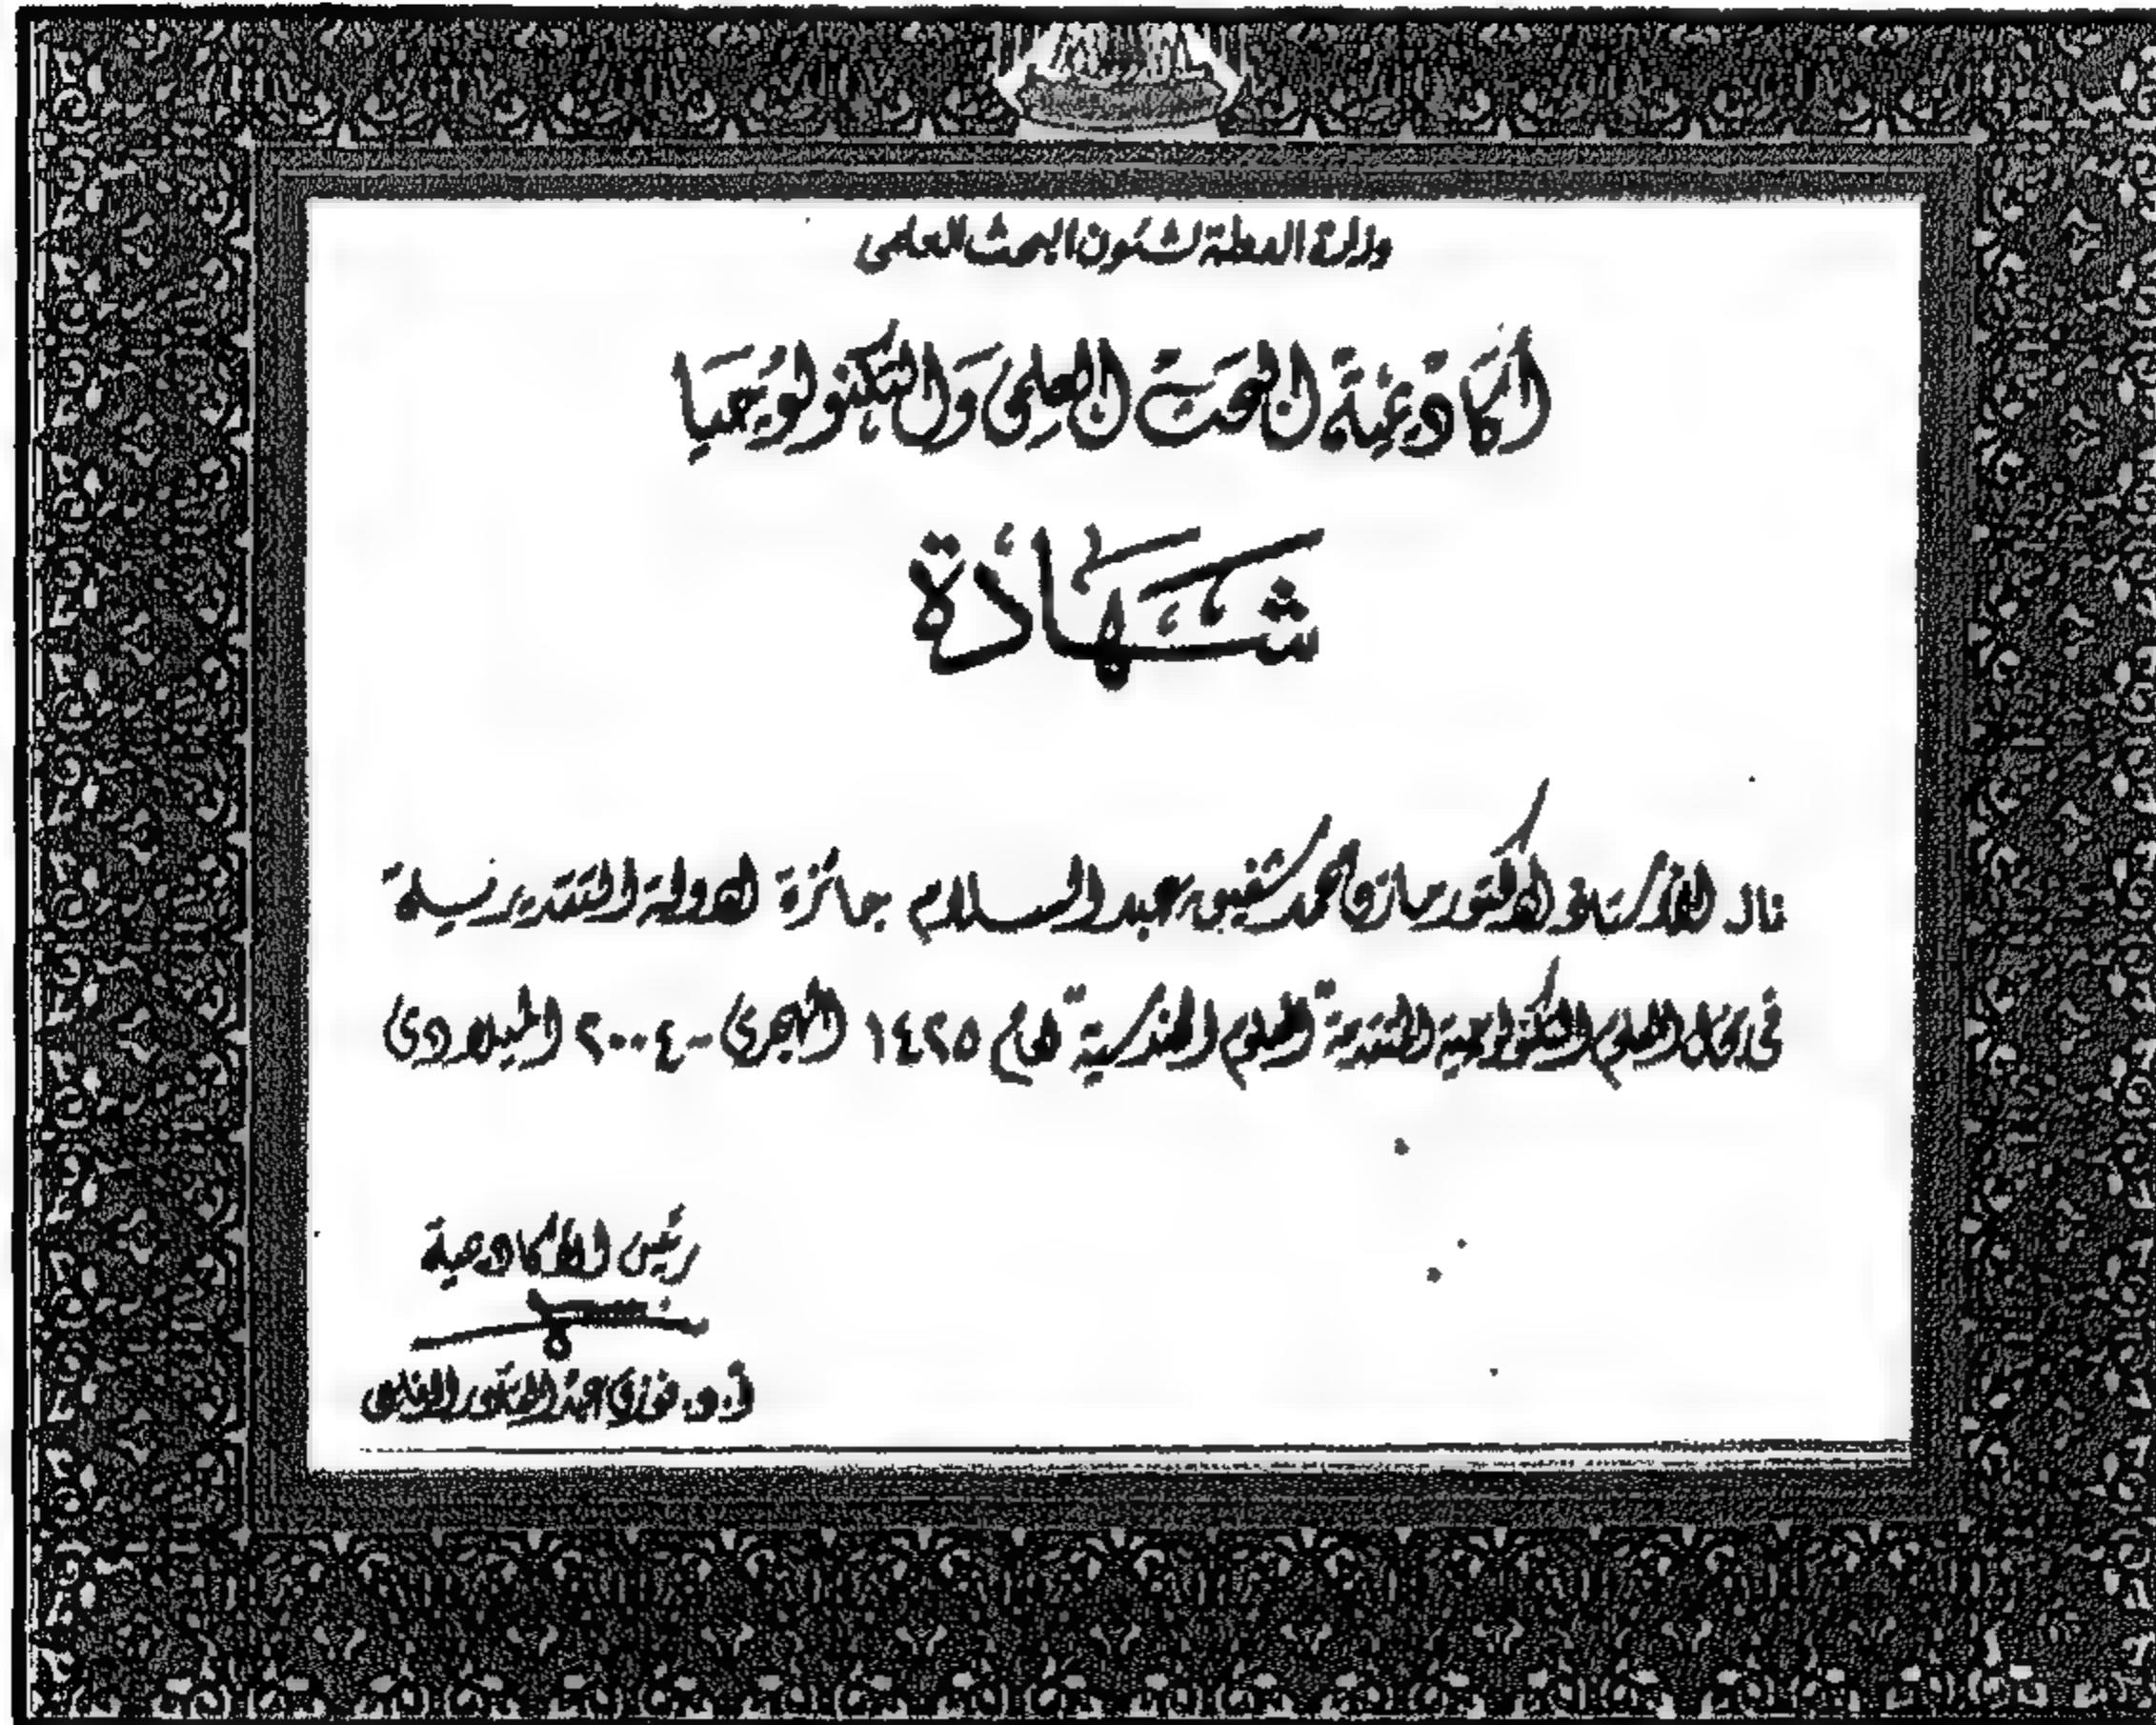 وزارة الدولة لشئون البحث العلمى
أكَاديميَّة البحَث العِلمى وَالتكنولوُجيَا
شَهَادَة
نال الأستاذ الدكتور مازن محمد شفيق عبد السلام جائزة الدولة التقديرية
فى مجال العلوم التكنولوجية المتقدمة "العلوم الهندسية" لعام ١٤٢٥ الهجرى - ٢٠٠٤ الميلادى
رئيس الأكاديمية
أ.د. فوزى عبد القادر الرفاعى